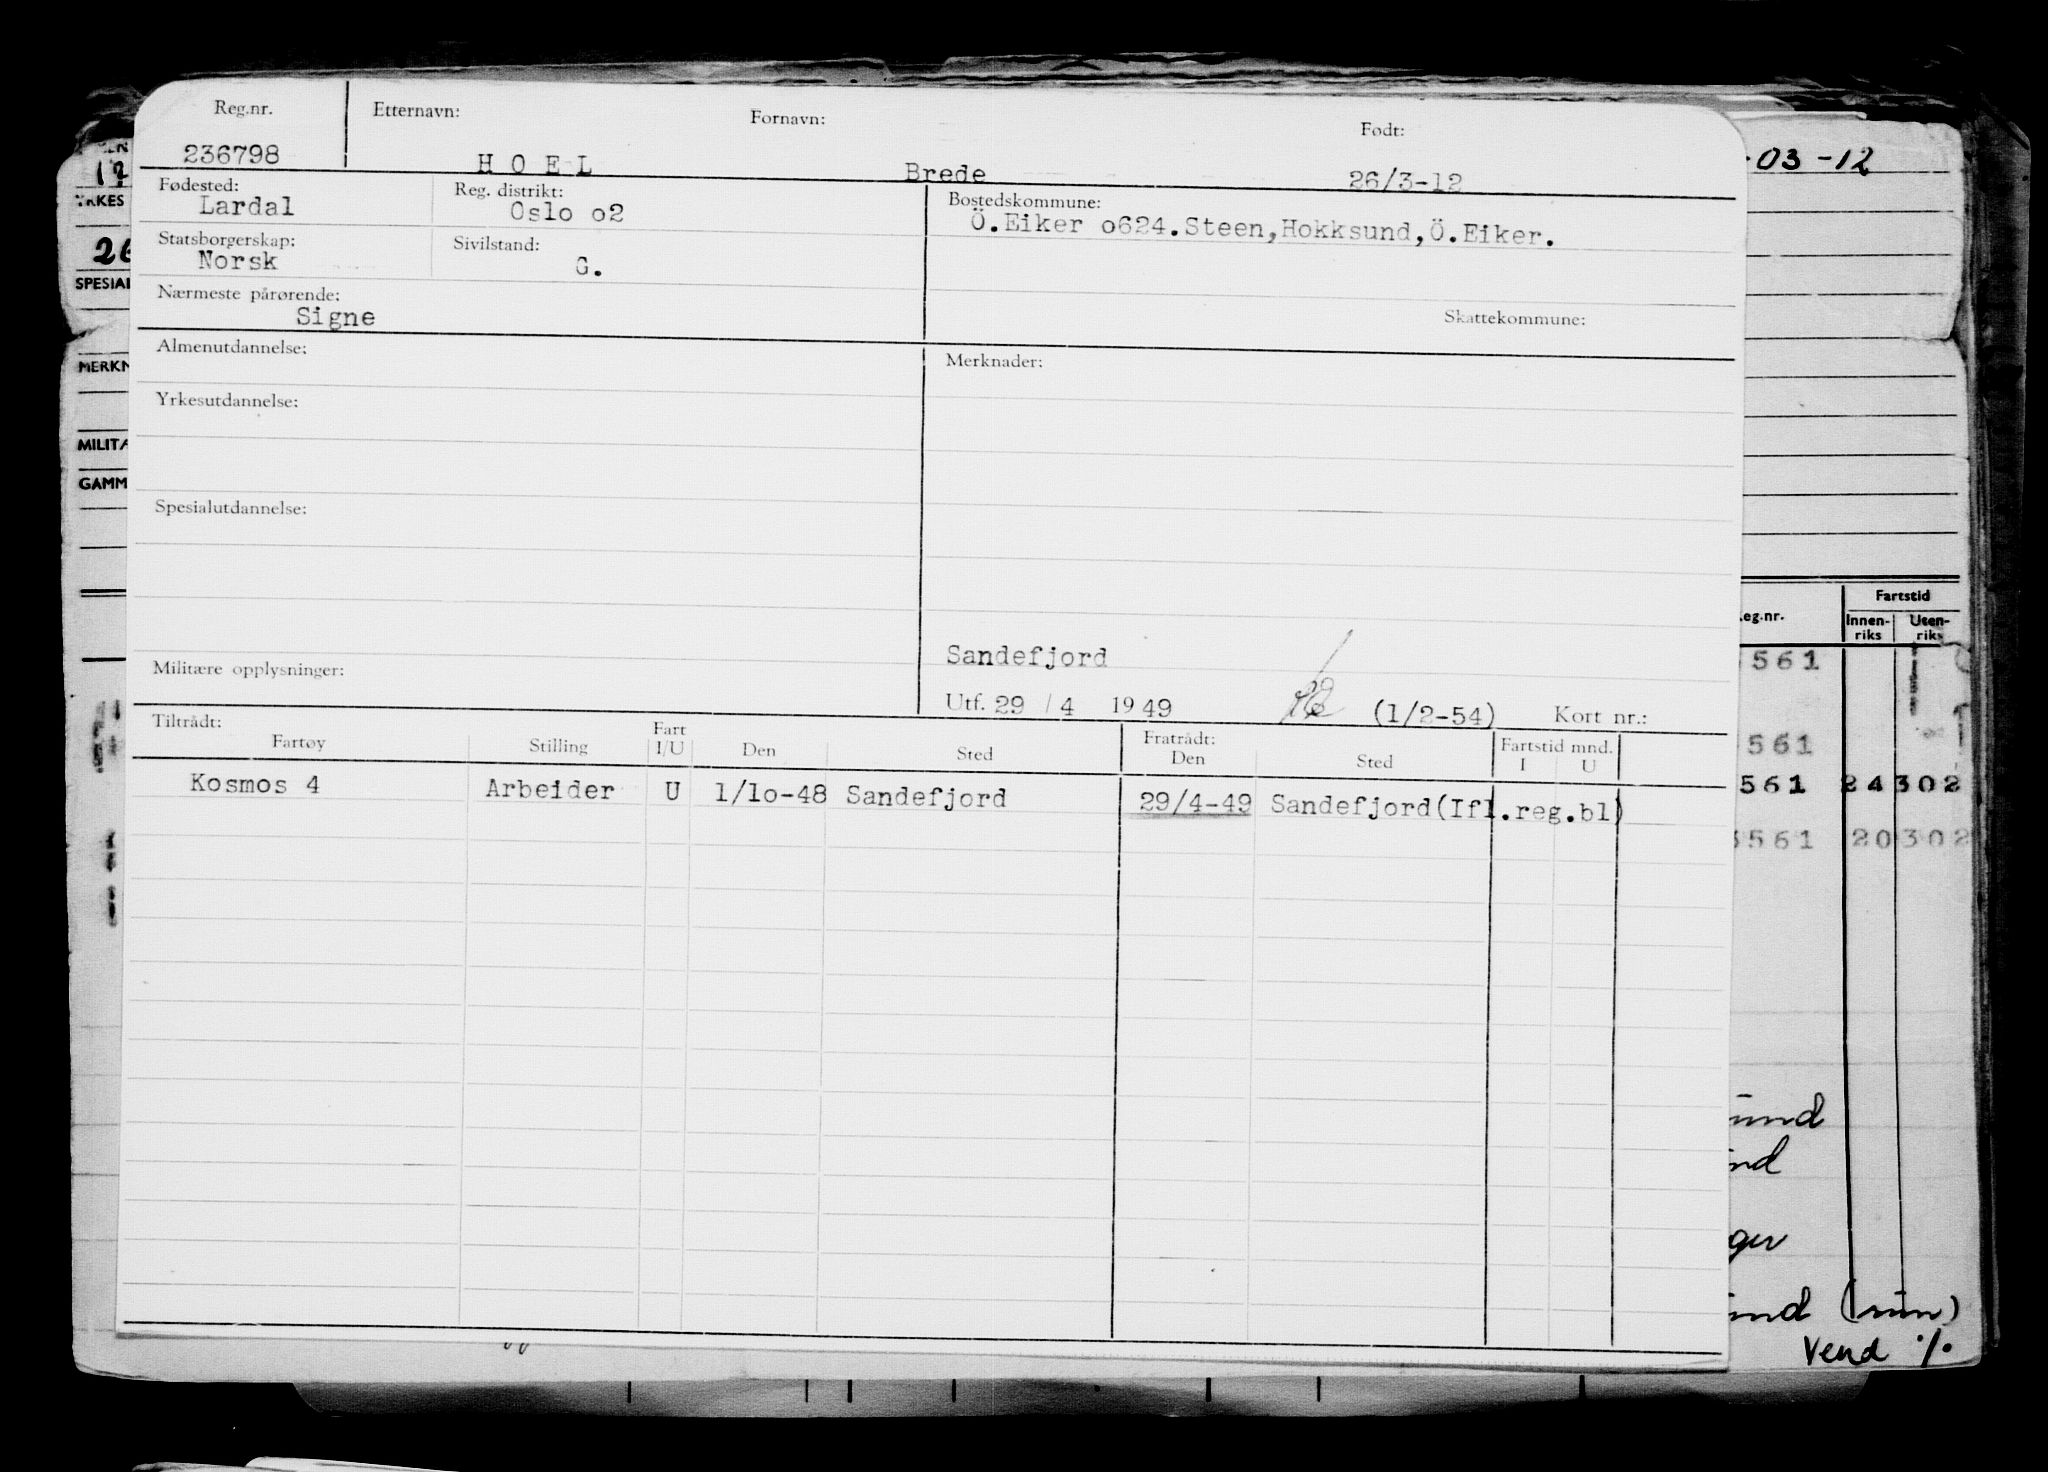 Reg.nr. Etternavn: Fornavn: Født:
236798 H O E L Brede 26/3-12
Fødested: Reg. distrikt: Bostedskommune:
Lardal Oslo o2 Ö.Eiker o624.Steen,Hokksund,Ö.Eiker.
Statsborgerskap: Sivilstand:
Norsk G.
Nærmeste pårørende: Skattekommune:
Signe
Almenutdannelse: Merknader:
Yrkesutdannelse:
Spesialutdannelse:
Sandefjord
Militære opplysninger:
Utf. 29 / 4 19 49 (1/2-54) Kort nr.:
Tiltrådt: Fart Fratrådt: Fartstid mnd.
Fartøy Stilling I/U Den Sted Den Sted I U
Kosmos 4 Arbeider U 1/1o-48 Sandefjord 29/4-49 Sandefjord(Ifl.reg.bl)
03-12
12
YRKES
26
SPESIAL
MERKN
MILITÆ
GAMM
eg.nr. Fartstid
Innen- Uten-
riks riks
561
561
561 24 302
3561 20 302
und
nd
ger
und (mm)
Vend ./.